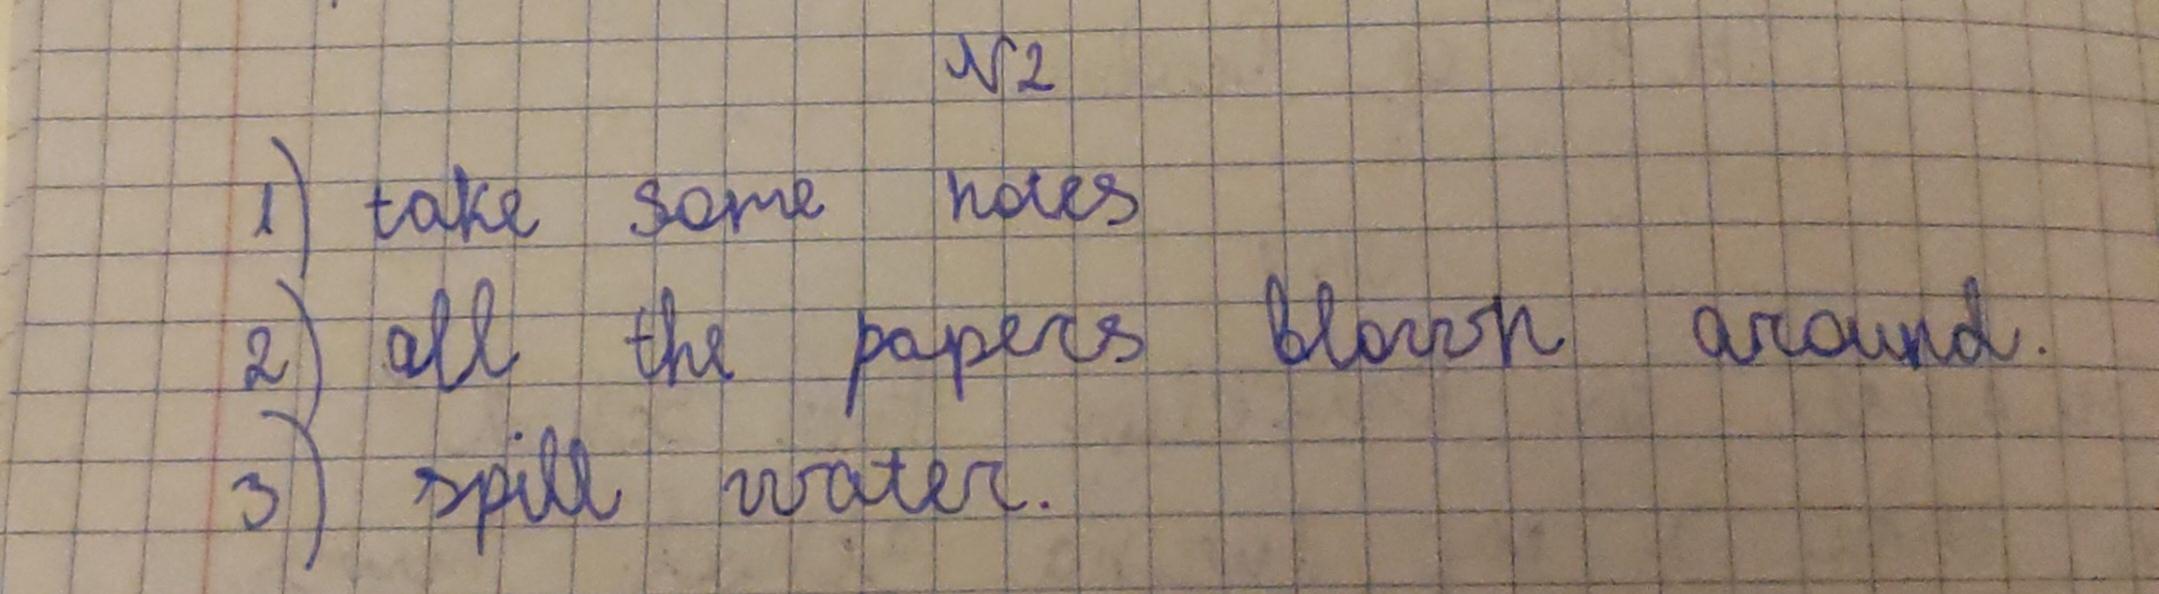 N2
1) take some notes
2) all the papers blown around.
3) spill water.